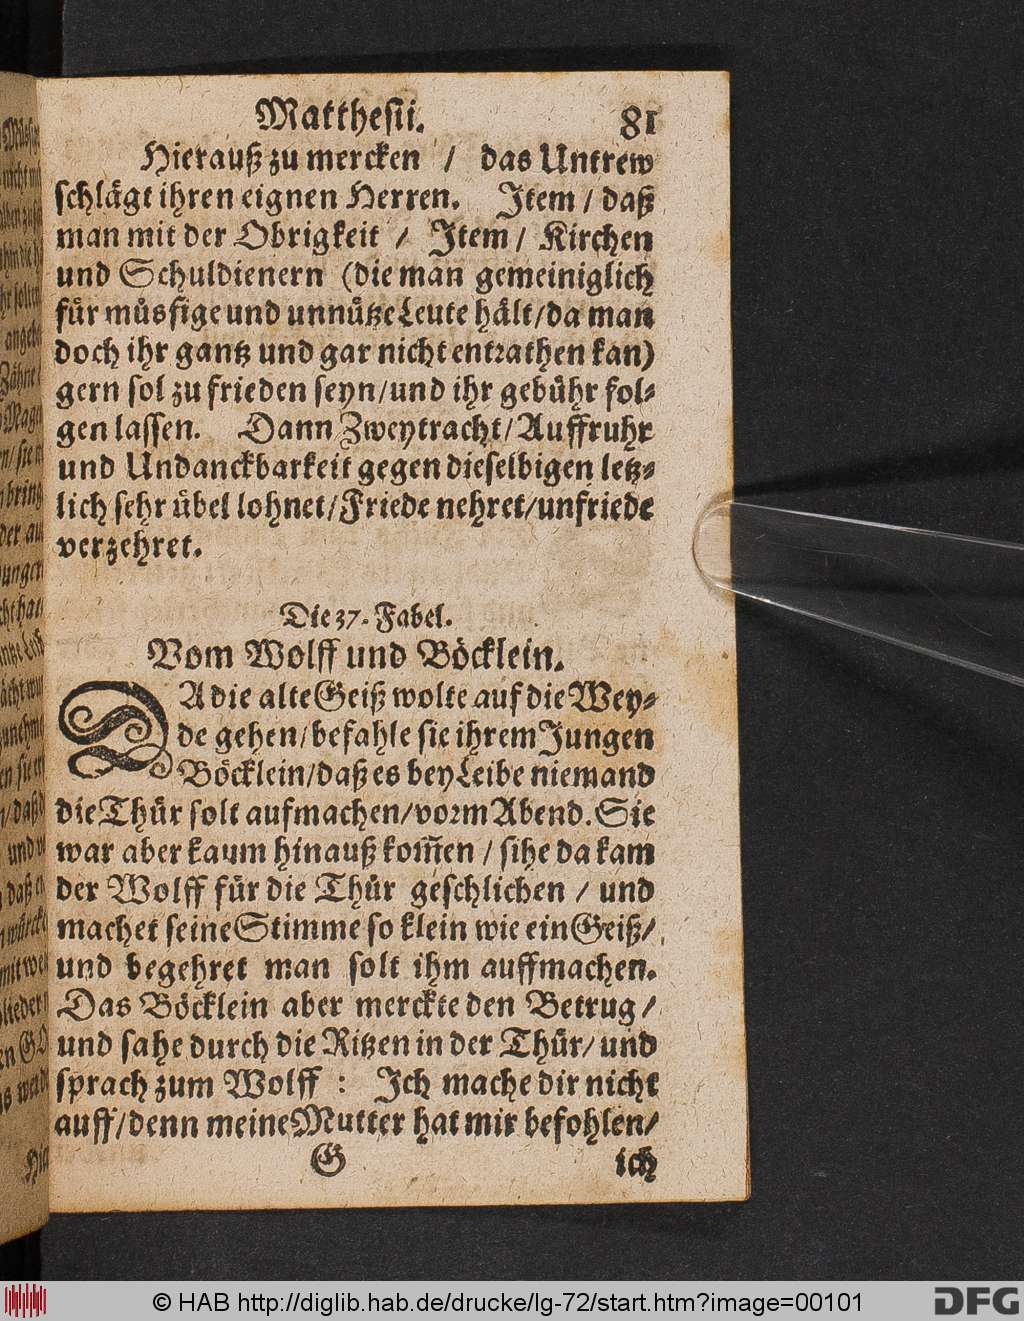 Matthesii. 81
Hierauß zu mercken / das Untrew
schlägt ihren eignen Herren. Item / daß
man mit der Obrigkeit / Item / Kirchen
und Schuldienern (die man gemeiniglich
für müsfige und unnütze Leute hält / da man
doch ihr gantz und gar nicht entrathen kan)
gern sol zu frieden seyn / und ihr gebühr fol-
gen lassen. Dann Zweytracht / Auffruhr
und Undanckbarkeit gegen dieselbigen letz-
lich sehr übel lohnet / Friede nehret / unfriede
verzehret.
Die 37. Fabel.
Vom Wolff und Böcklein.
DA die alte Geiß wolte auf die Wey-
de gehen / befahle sie ihrem Jungen
Böcklein / daß es bey Leibe niemand
die Thür solt aufmachen / vorm Abend. Sie
war aber kaum hinauß kom̃en / sihe da kam
der Wolff für die Thür geschlichen / und
machet seine Stimme so klein wie ein Geiß /
und begehret man solt ihm auffmachen.
Das Böcklein aber merckte den Betrug /
und sahe durch die Ritzen in der Thür / und
sprach zum Wolff : Ich mache dir nicht
auff / denn meine Mutter hat mir befohlen /
G ich
© HAB http://diglib.hab.de/drucke/lg-72/start.htm?image=00101 DFG